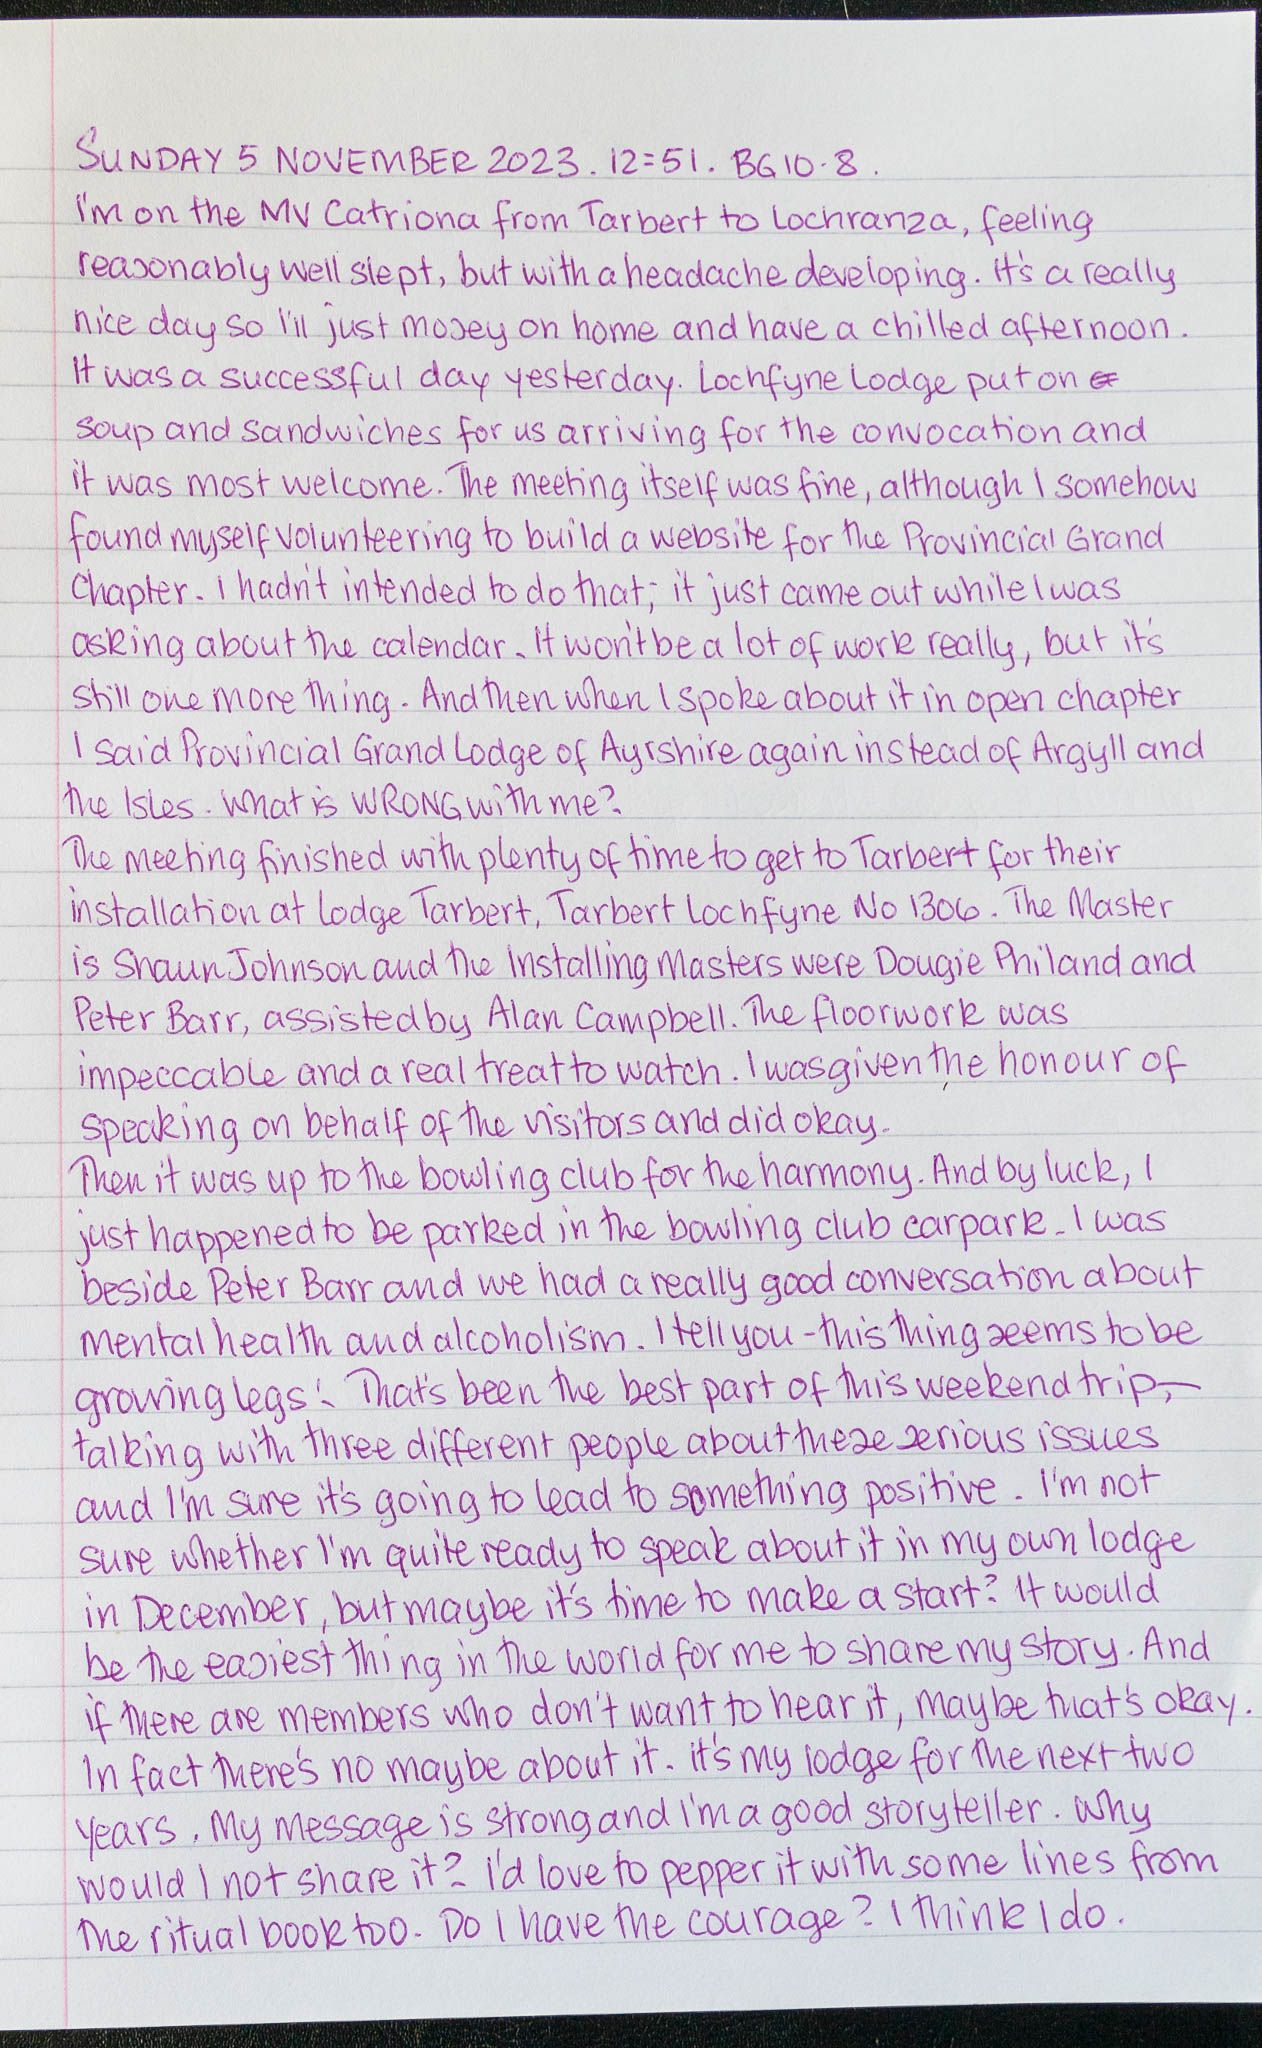 SUNDAY 5 NOVEMBER 2023. 12=51. BG 10.8.
I'm on the MV Catriona from Tarbert to Lochranza, feeling
reasonably well slept, but with a headache developing. It's a really
nice day so I'll just mosey on home and have a chilled afternoon.
It was a successful day yesterday. Lochfyne Lodge put on
soup and sandwiches for us arriving for the convocation and
it was most welcome. The meeting itself was fine, although I somehow
found myself volunteering to build a website for the Provincial Grand
Chapter. I hadn't intended to do that; it just came out while I was
asking about the calendar. It won't be a lot of work really, but it's
still one more thing. And then when I spoke about it in open chapter
I said Provincial Grand Lodge of Ayrshire again instead of Argyll and
the Isles. What is WRONG with me?
The meeting finished with plenty of time to get to Tarbert for their
installation at Lodge Tarbert, Tarbert Lochfyne No 1306. The Master
is Shaun Johnson and the Installing Masters were Dougie Philand and
Peter Barr, assisted by Alan Campbell. The floorwork was
impeccable and a real treat to watch. I was given the honour of
speaking on behalf of the visitors and did okay.
Then it was up to the bowling club for the harmony. And by luck, I
just happened to be parked in the bowling club carpark. I was
beside Peter Barr and we had a really good conversation about
mental health and alcoholism. I tell you - this thing seems to be
growing legs! That's been the best part of this weekend trip,
talking with three different people about these serious issues
and I'm sure it's going to lead to something positive. I'm not
sure whether I'm quite ready to speak about it in my own lodge
in December, but maybe it's time to make a start? It would
be the easiest thing in the world for me to share my story. And
if there are members who don't want to hear it, maybe that's okay.
In fact there's no maybe about it. It's my lodge for the next two
years. My message is strong and I'm a good storyteller. Why
would I not share it? I'd love to pepper it with some lines from
the ritual book too. Do I have the courage? I think I do.